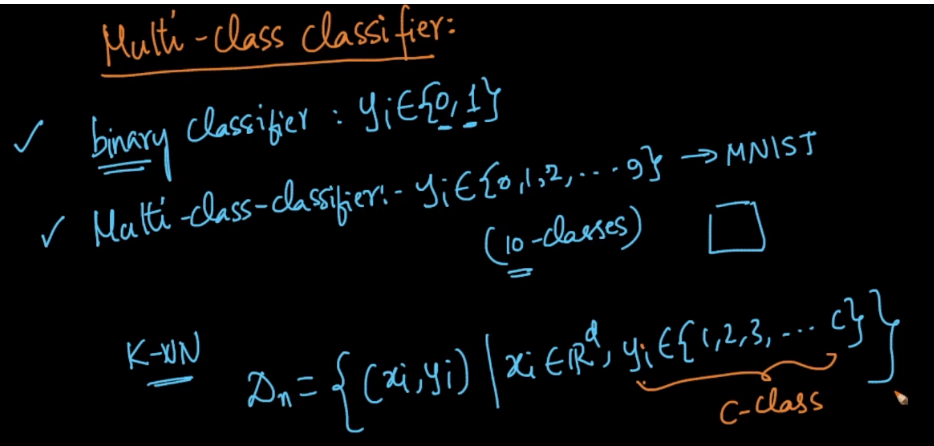 Multi-class classifier:
✓ binary classifier : yᵢ∈{0,1}
✓ Multi-class-classifier:- yᵢ∈{0,1,2,...9} → MNIST
(10-classes)
K-NN
Dₙ = {(xᵢ,yᵢ) | xᵢ∈ℝᵈ, yᵢ∈{1,2,3,... c}}
C-class